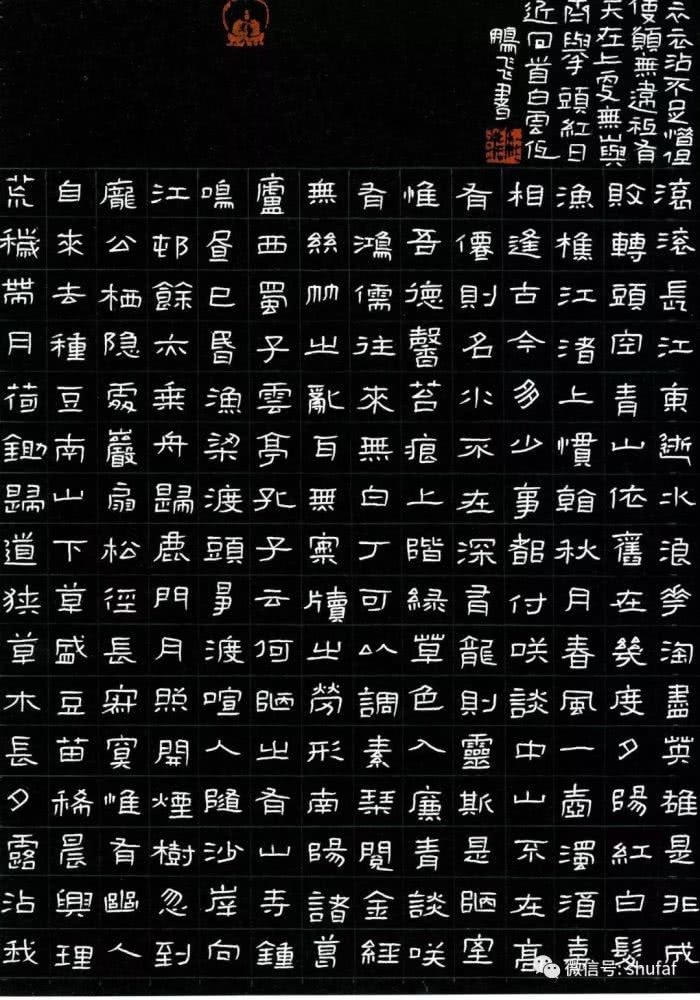 滾滾長江東逝水浪花淘盡英雄是非成
敗轉頭空青山依舊在幾度夕陽紅白髮
漁樵江渚上慣看秋月春風一壺濁酒喜
相逢古今多少事都付咲談中山不在高
有僊則名水不在深有龍則靈斯是陋室
惟吾德馨苔痕上階緑草色入簾青談咲
有鴻儒往來無白丁可以調素琴閱金經
無絲竹之亂耳無案牘之勞形南陽諸葛
廬西蜀子雲亭孔子云何陋之有山寺鍾
鳴晝已昏漁梁渡頭爭渡喧人隨沙岸向
江邨餘亦乘舟歸鹿門月照開煙樹忽到
龐公栖隐處巖扃松徑長寂寞惟有幽人
自來去種豆南山下草盛豆苗稀晨興理
荒穢帶月荷鋤歸道狹草木長夕露沾我
衣衣沾不足惜但
使願無違祗有
天在上更無山與
齊舉頭紅日
近回首白雲低
鵬飛書
微信号: shufaf